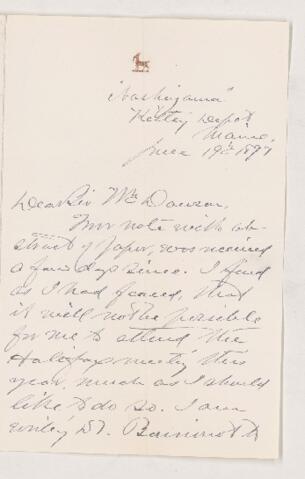 Depot
Maine,
June 19th 1897
Dear Sir Wm Dawson,
Your note with ab-
stract of paper, was received
a few days since. I find
as I had feared, that
it will not be possible
for me to attend the
Halifax meeting this
year, much as I should
like to do so. I am
writing Dr.